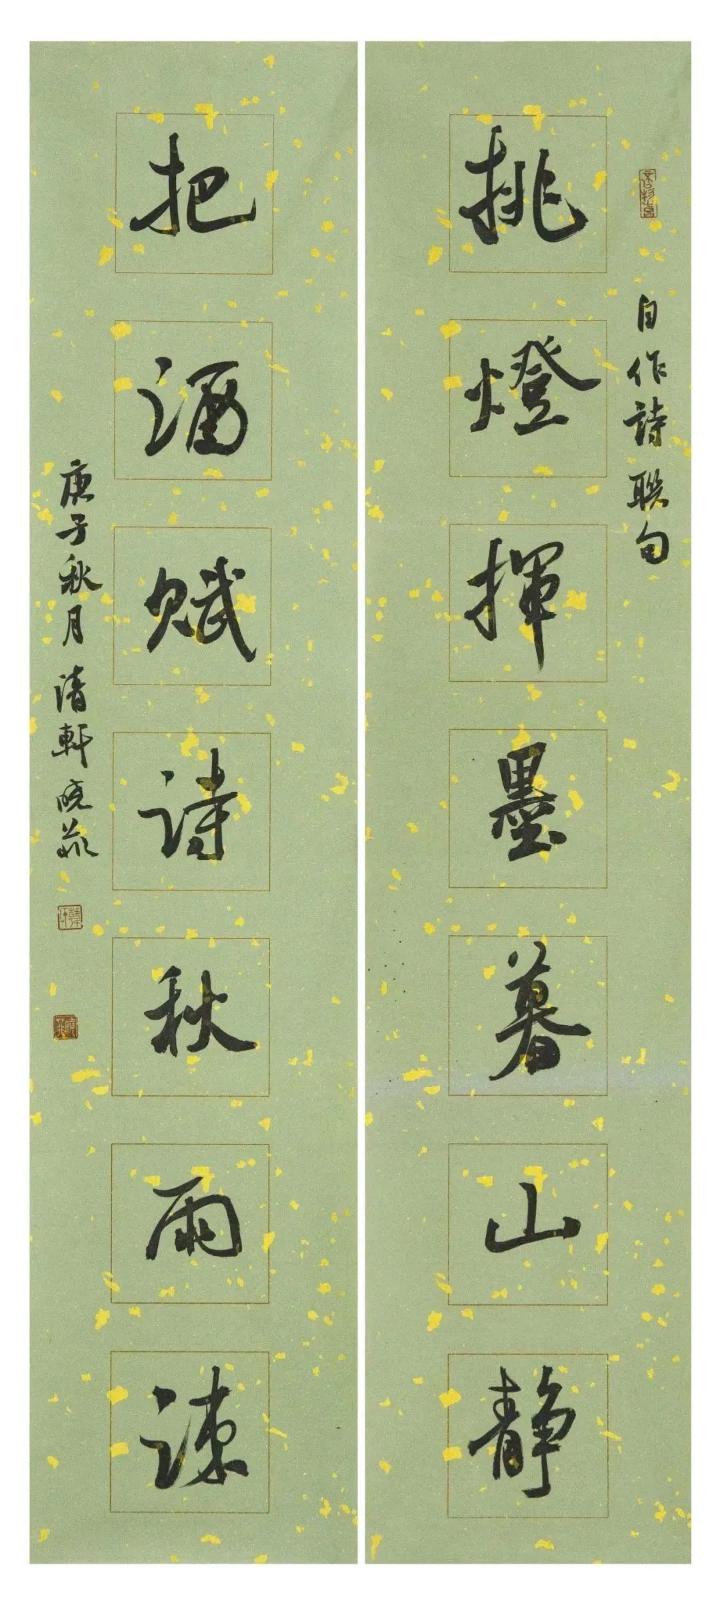 自作詩聯句
挑燈揮墨暮山静
把酒賦詩秋雨疎
庚子秋月清軒晓